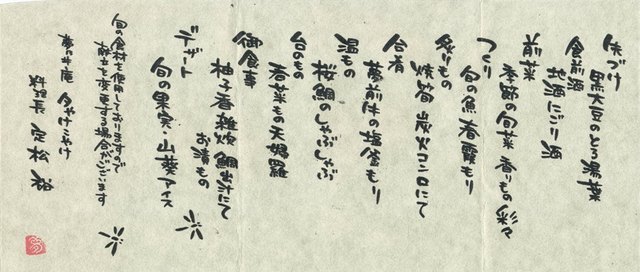 先づけ
黒大豆のとろ湯葉
食前酒
地酒にごり酒
前菜
季節の旬菜 香りもの彩々
つくり
旬の魚春霞もり
炙りもの
焼筍 炭火コンロにて
合肴
夢前の塩釜もり
温もの
桜鯛のしゃぶしゃぶ
台のもの
春菜もの天婦羅
御食事
柚子香雑炊 鯛出汁にて
お漬もの
デザート
旬の果実・山葵アイス
旬の食材を使用しておりますので
献立を変更する場合がございます
夢乃井庵 夕やけこやけ
料理長 定松